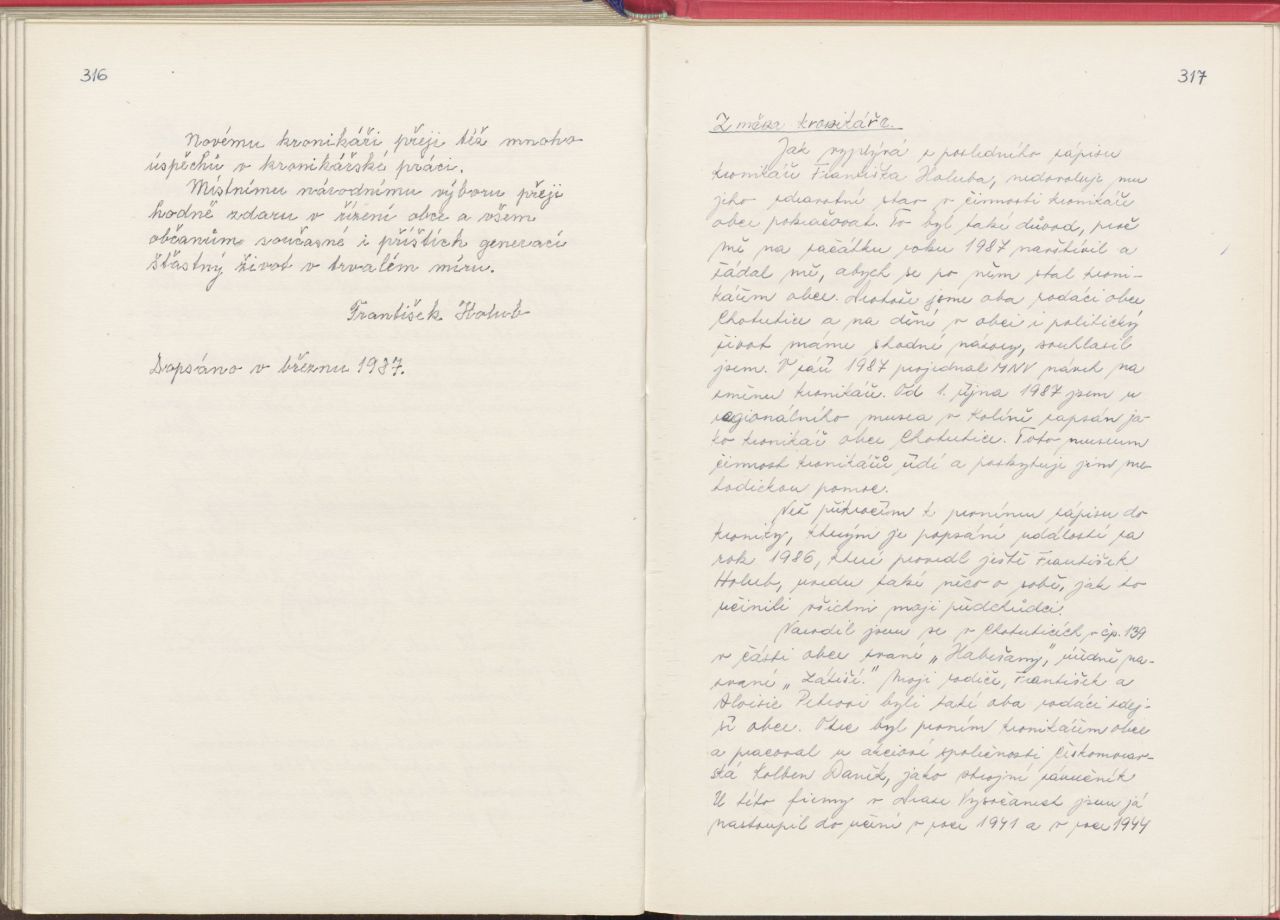 316
Novému kronikáři přeji též mnoho
úspěchů v kronikářské práci.
Místnímu národnímu výboru přeji
hodně zdaru v řízení obce a všem
občanům současné i příštích generací
šťastný život v trvalém míru.
František Holub
Dopsáno v březnu 1987.
317
Změna kronikáře.
Jak vyplývá z posledního zápisu
kronikáře Františka Holuba, nedovoluje mu
jeho zdravotní stav v činnosti kronikáře
obce pokračovat. To byl také důvod, proč
mě na začátku roku 1987 navštívil a
žádal mě, abych se po něm stal kroni-
kářem obce. Protože jsme oba rodáci obce
Chotutice a na dění v obci i politický
život máme shodné názory, souhlasil
jsem. V září 1987 projednal MNV návrh na
změnu kronikáře. Od 1. října 1987 jsem u
regionálního musea v Kolíně zapsán ja-
ko kronikář obce Chotutice. Toto museum
činnost kronikářů řídí a poskytuje jim me-
todickou pomoc.
Než přikročím k prvnímu zápisu do
kroniky, kterým je popsání událostí za
rok 1986, které provedl ještě František
Holub, uvedu také něco o sobě, jak to
učinili všichni moji předchůdci.
Narodil jsem se v Chotuticích v čp. 139
v části obce zvané „Habešany", úředně na-
zvané „Zátiší." Moji rodiče, František a
Aloisie Petrovi byli také oba rodáci zdej-
ší obce. Otec byl prvním kronikářem obce
a pracoval u akciové společnosti Českomorav-
ská Kolben Daněk, jako strojní zámečník
U této firmy v Praze Vysočanech jsem já
nastoupil do učení v roce 1941 a v roce 1944